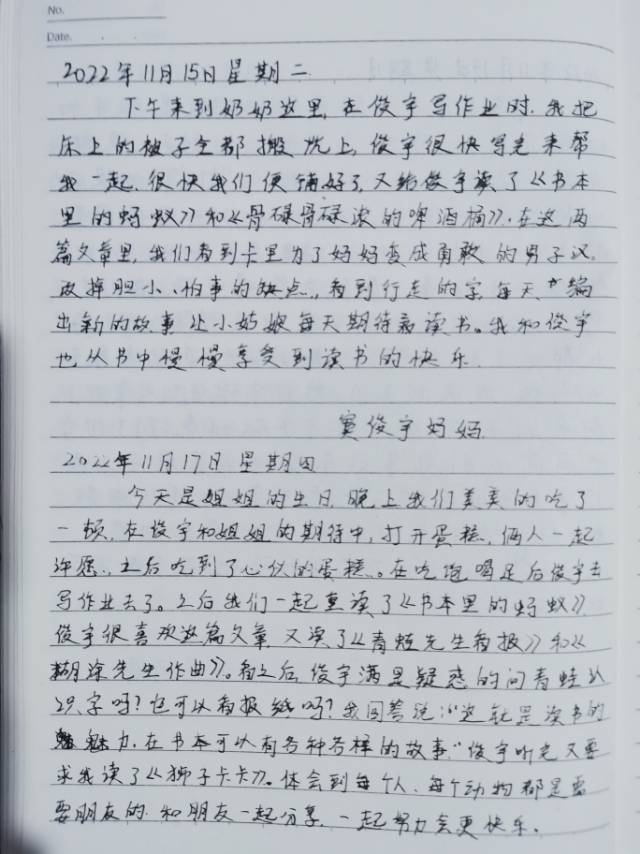 No.
Date.
2022年11月15日星期二
下午来到奶奶这里,在俊宇写作业时.我把
床上的被子全都搬炕上,俊宇很快写完来帮
我一起,很快我们便铺好了,又给俊宇读了《书本
里的蚂蚁》和《骨碌骨碌滚的啤酒桶》.在这两
篇文章里,我们看到卡里为了妈妈变成勇敢的男子汉.
改掉胆小、怕事的缺点.,看到行走的字,每天都编
出新的故事让小姑娘每天期待着读书。我和俊宇
也从书中慢慢享受到读书的快乐.
窦俊宇妈妈.
2022年11月17日星期四
今天是姐姐的生日,晚上我们美美的吃了
一顿,在俊宇和姐姐的期待中,打开蛋糕,俩人一起
许愿.,之后吃到了心仪的蛋糕。在吃饱喝足后俊宇去
写作业去了。之后我们一起重读了《书本里的蚂蚁》,
俊宇很喜欢这篇文章,又读了《青蛙先生看报》和《
糊涂先生作曲》。看之后俊宇满是疑惑的问青蛙认
识字吗?也可以看报纸吗?我回答说:“这就是读书的
魅力,在书本可以有各种各样的故事.”俊宇听完又要
求我读了《狮子卡卡》。体会到每个人、每个动物都是需
要朋友的.和朋友一起分享,一起努力会更快乐.